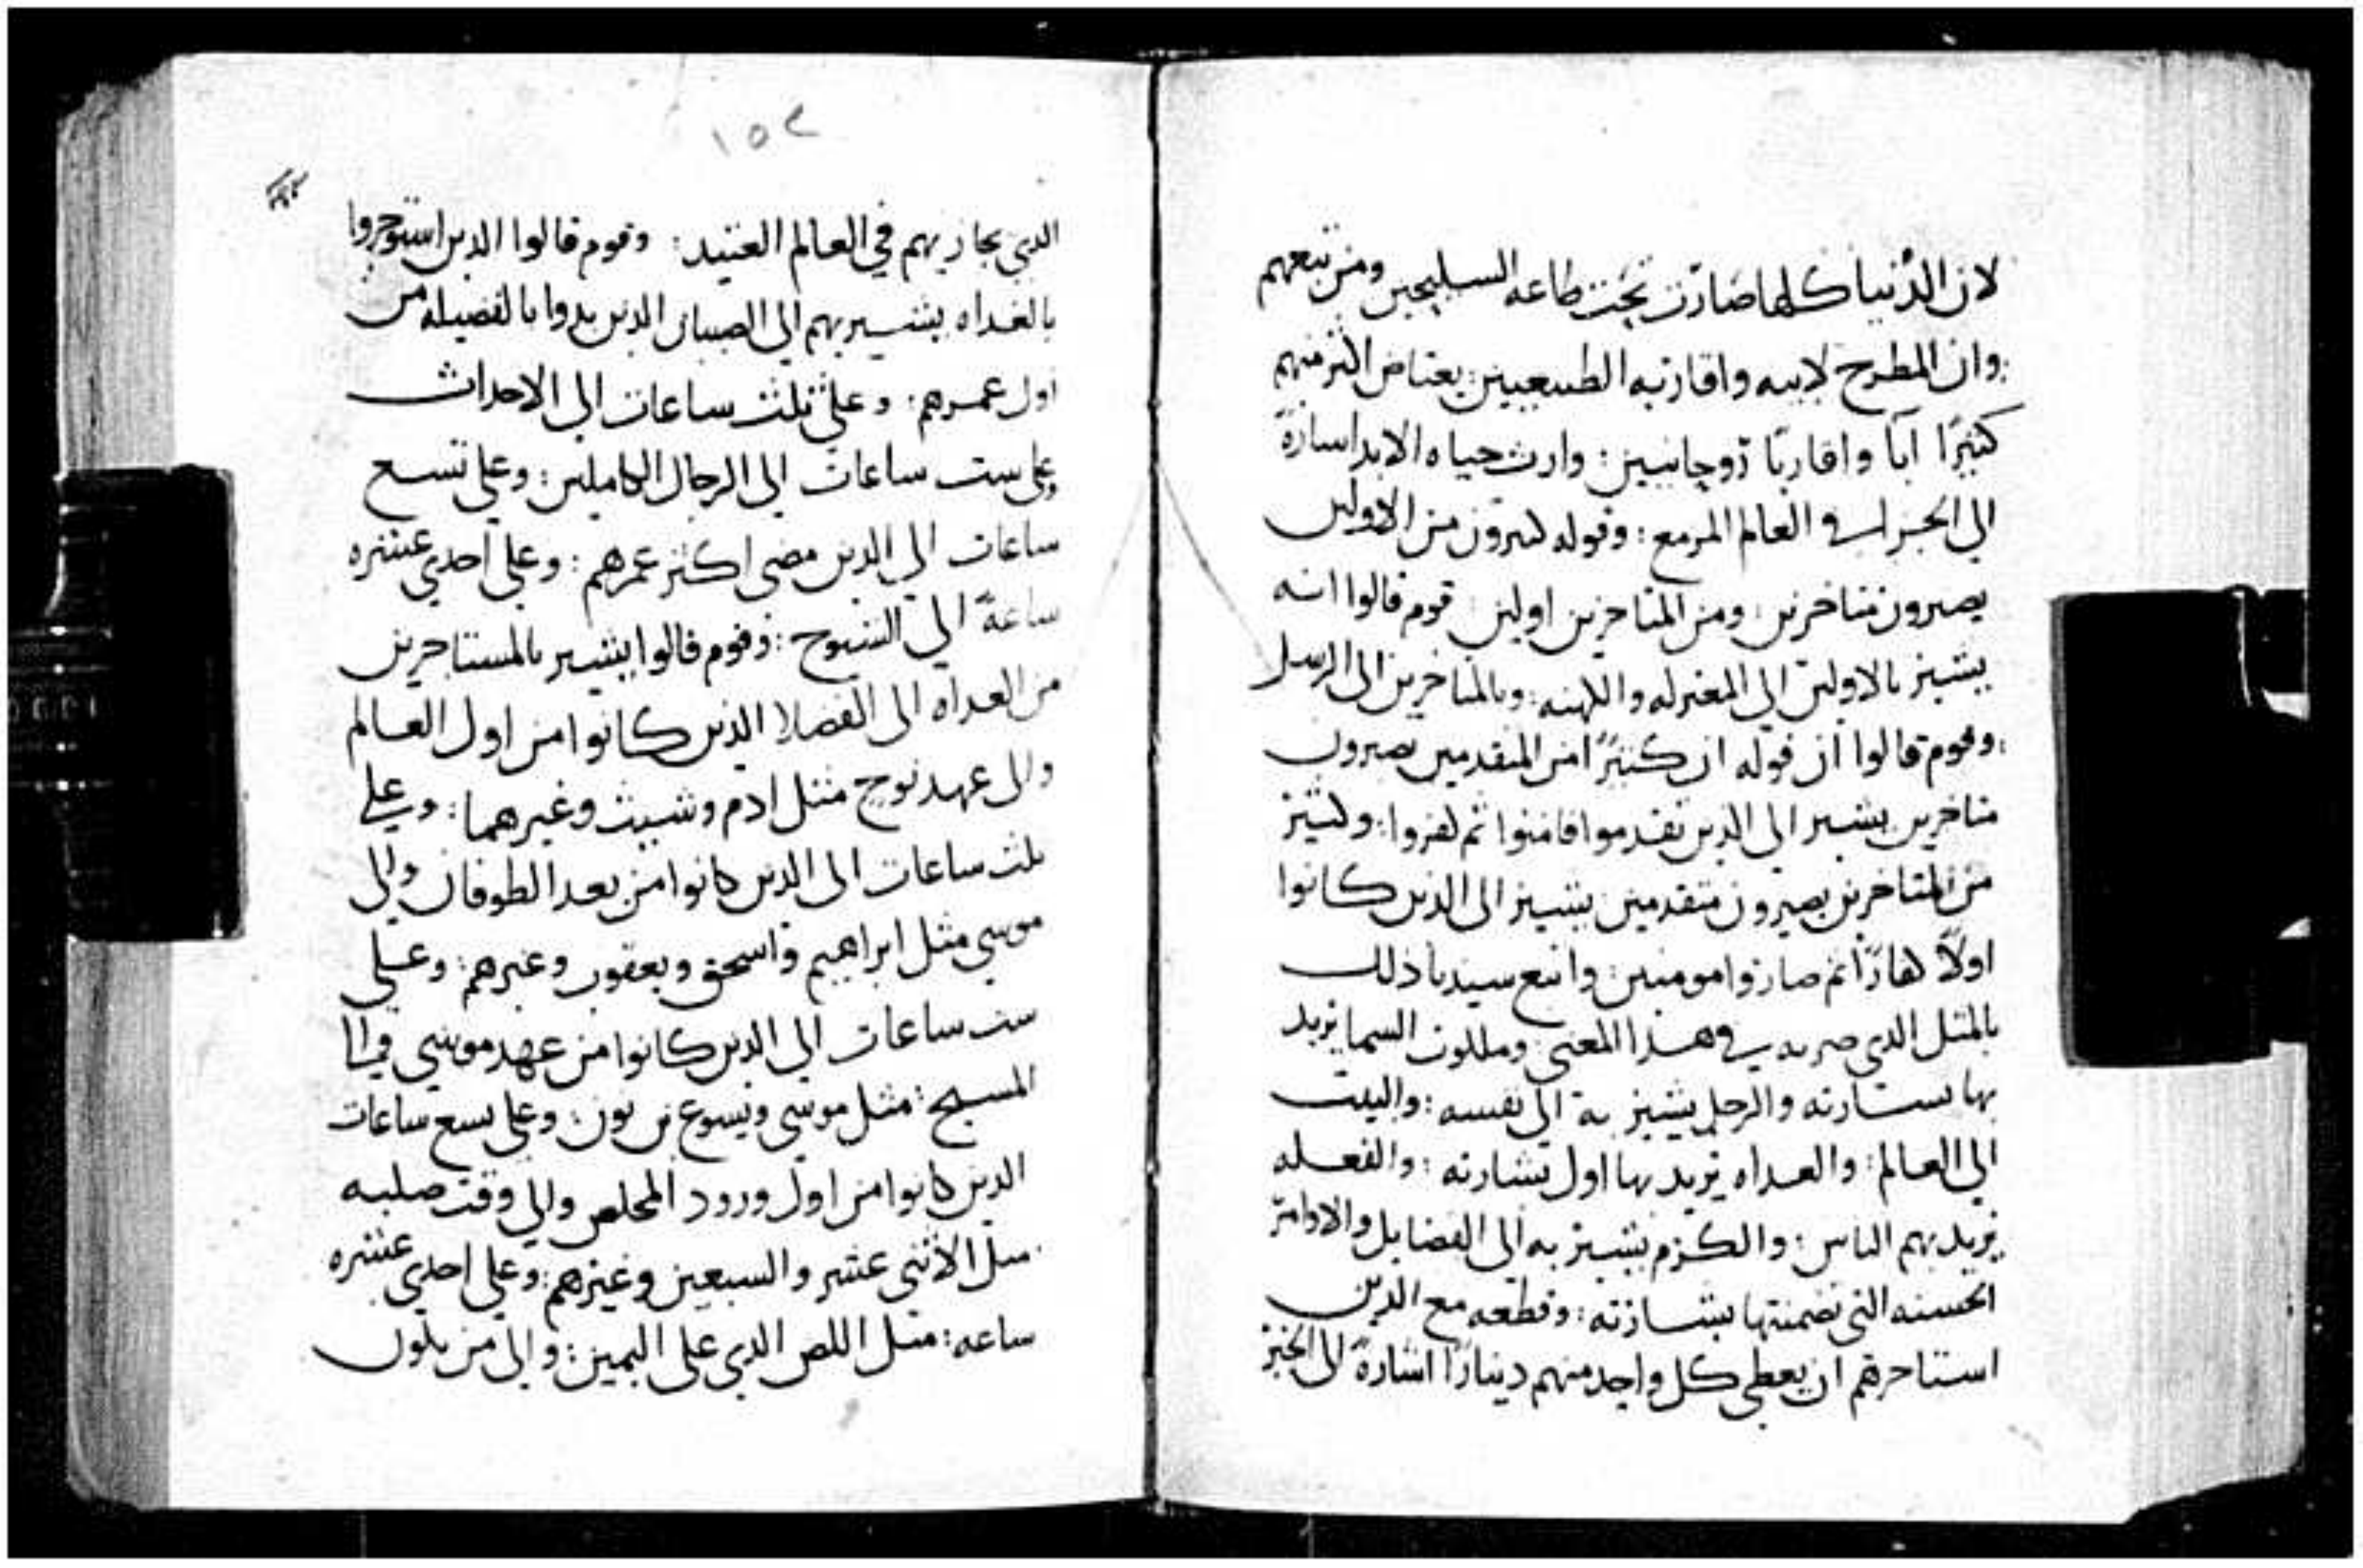 لان الدنيا كلها صارت تحت طاعه السليحين ومن تبعهم
وان المطرح لابيه واقاربه الطبيعيين: يعتاض اكثر منهم
كثيرًا ابآ واقاربًا روحانيين: وارث حياه الابد اشارةً
الي الجزا في العالم المزمع: وقوله كثيرون من الاولين
يصيرون متاخرين: ومن المتاخرين اولين: قوم قالوا انه
يشير بالاولين الي المعتزله والكهنه: وبالمتاخرين الى الرسل
: وقوم قالوا ان قوله ان كثيرًا من المتقدمين يصيرون
متاخرين يشير الي الذين تقدموا فامنوا ثم كفروا: وكثير
من المتاخرين يصيرون متقدمين: يشير الى الذين كانوا
اولاً كفارًا ثم صاروا مومنين: واتبع سيدنا ذلك
بالمثل الذي ضربه في هذا المعني: وملكوت السما يريد
بها بشارته والرجل يشير به الي نفسه: والبيت
الي العالم: والغداه يريد بها اول بشارته: والفعله
يريد بهم الناس: والكرم يشير به الى الفضايل والاوامر
الحسنه التي تضمنتها بشارته: وقطعه مع الذين
استاجرهم ان يعطي كل واحد منهم دينارًا اشارةً الى الخير
١٥٢
الذي يجازيهم في العالم العتيد: وقوم قالوا الذين استوجروا
بالغداه يشير بهم الي الصبيان الذين بدوا بالفضيله من
اول عمرهم: وعلي ثلث ساعات الي الاحداث
وعلى ست ساعات الى الرجال الكاملين: وعلي تسع
ساعات الي الذين مضي اكثر عمرهم: وعلي احدي عشره
ساعةً الي الشيوح: وقوم قالوا يشير بالمستاجرين
من الغداه الى الفضلا الذين كانوا من اول العالم
والى عهد نوح مثل ادم وشيث وغيرهما: وعلي
ثلث ساعات الى الذين كانوا من بعد الطوفان والي
موسي مثل ابراهيم واسحق ويعقوب وغيرهم: وعلي
ست ساعات الي الذين كانوا من عهد موسي
المسيح: مثل موسي ويسوع بن نون: وعلى تسع ساعات
الذين كانوا من اول ورود المخلص والي وقت صلبه
مثل الاثني عشر والسبعين وغيرهم: وعلي احدي عشره
ساعه: مثل اللص الذي على اليمين: والى من يكون